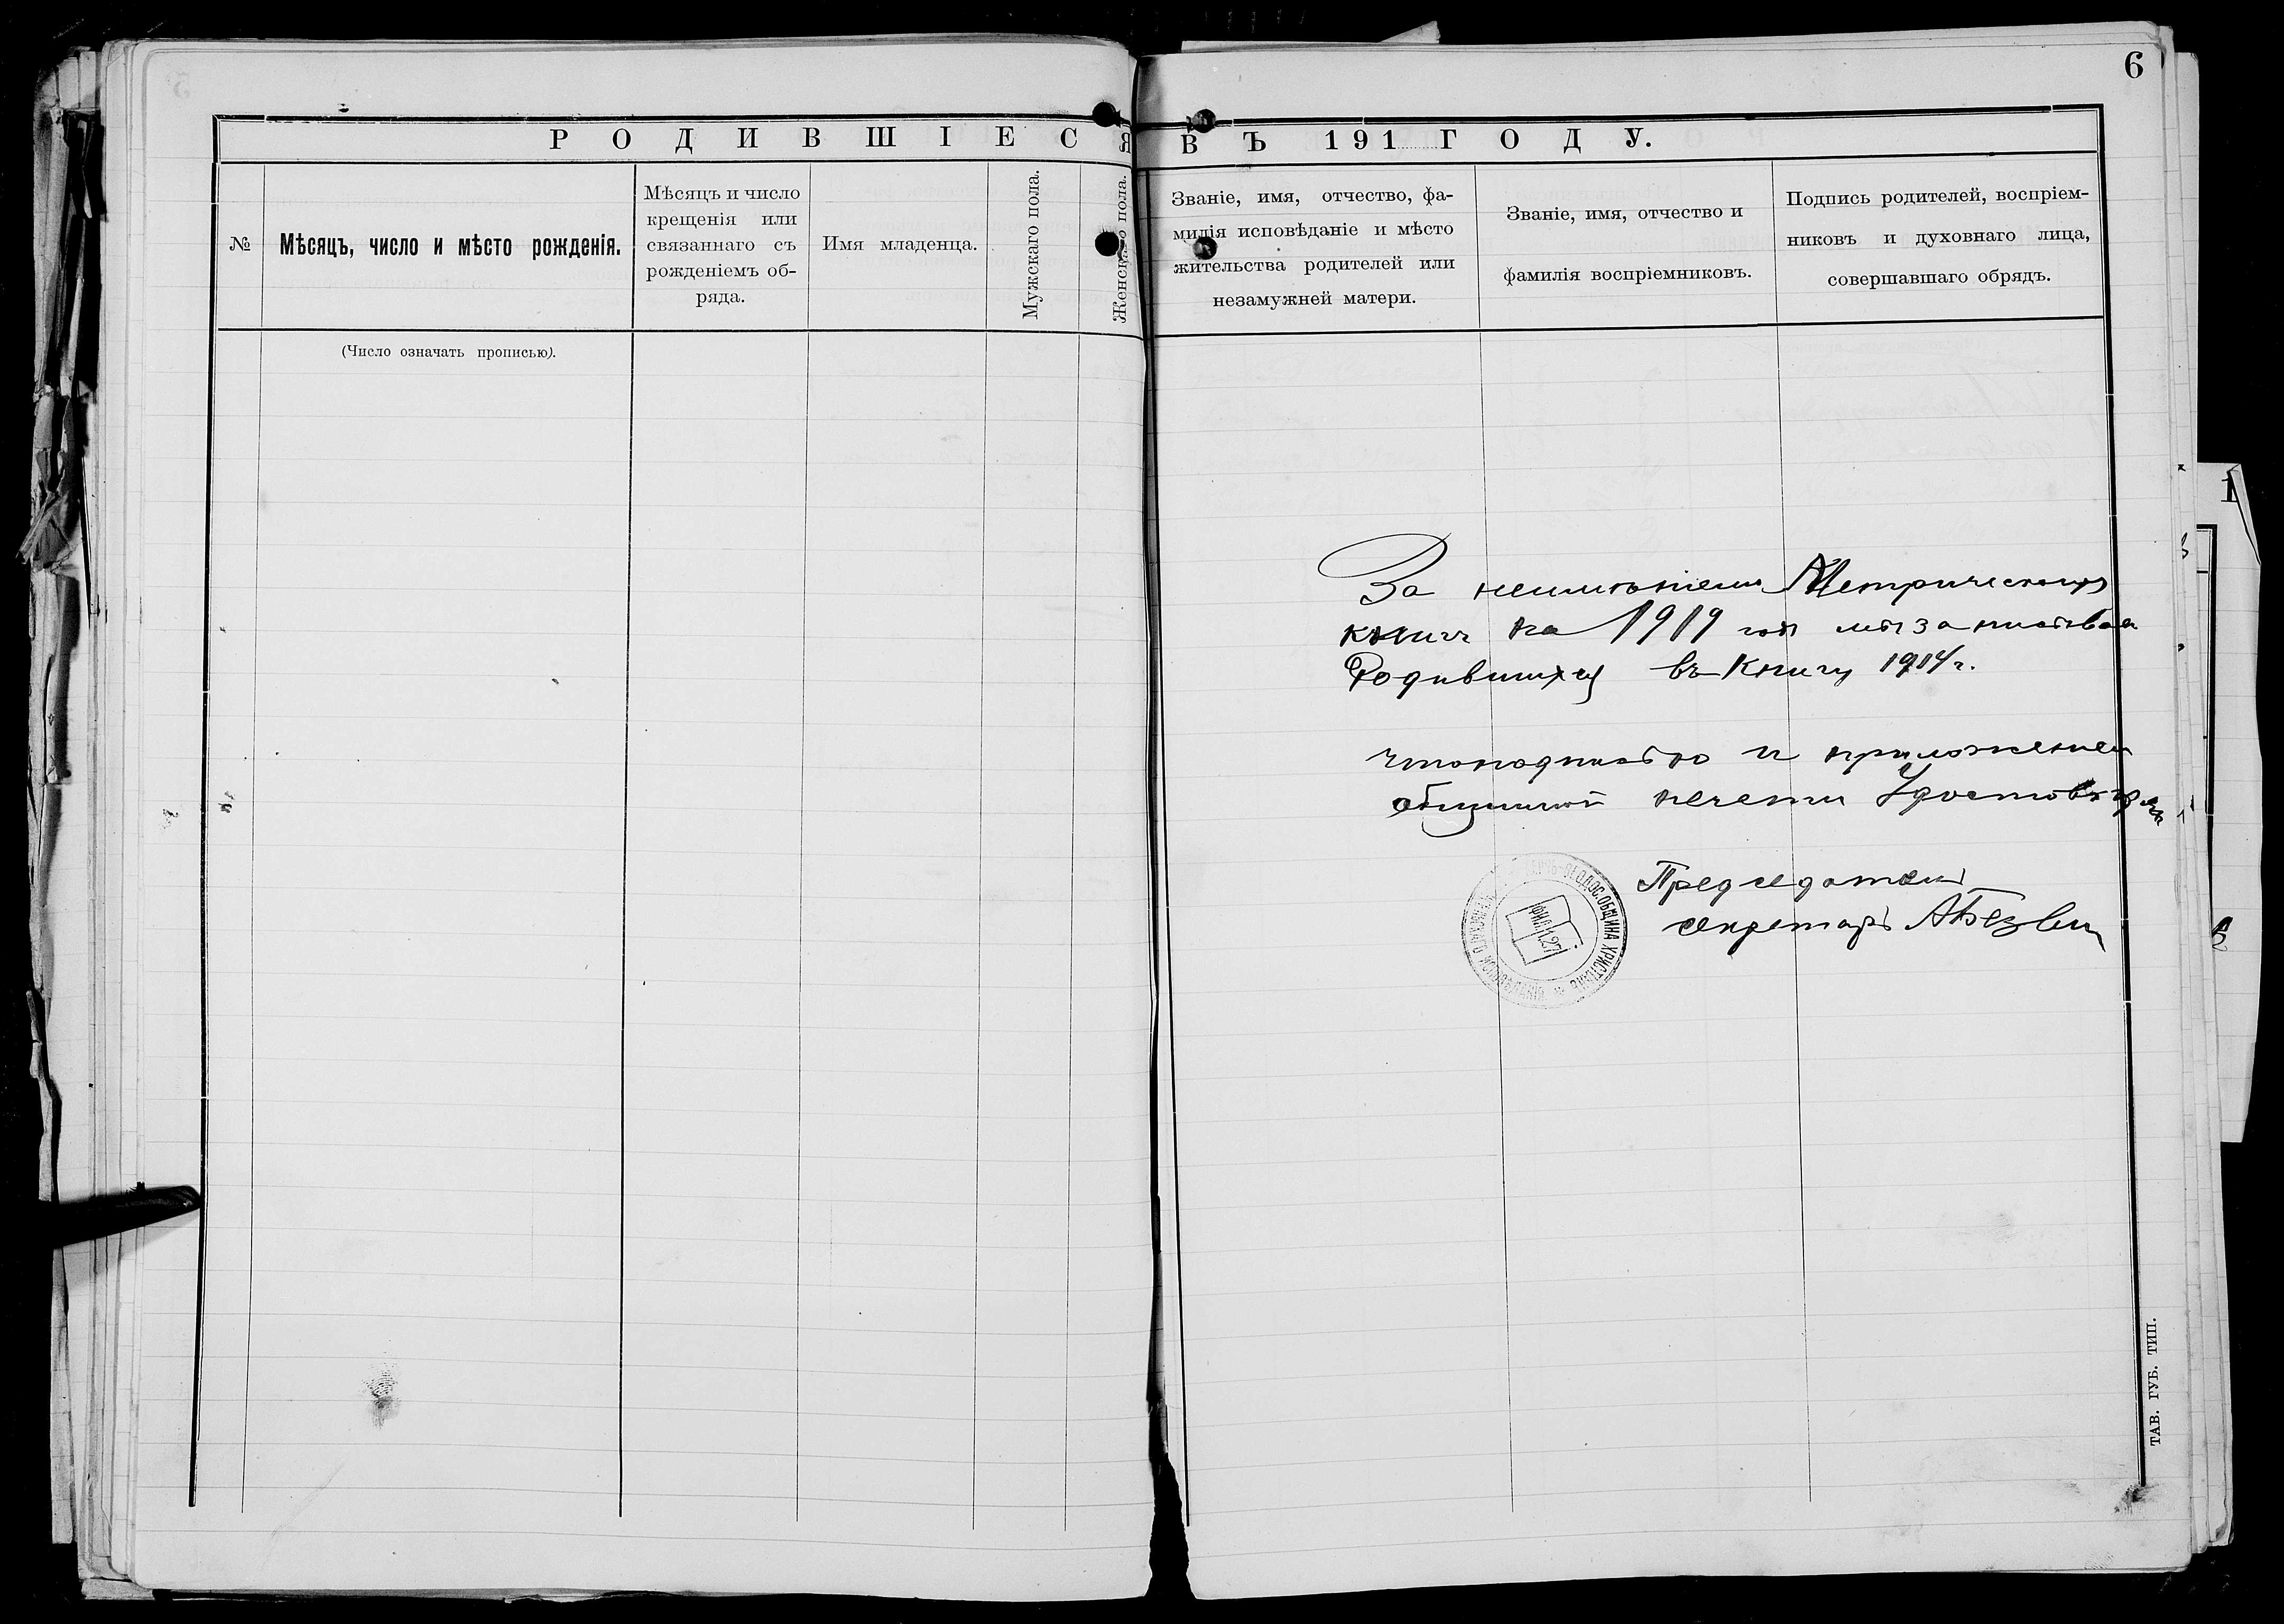 6
РОДИВШІЕСЯ ВЪ 191 ГОДУ.
№
Мѣсяцъ, число и мѣсто рожденія.
Мѣсяцъ и число
крещенія или
связаннаго съ
рожденіемъ об-
ряда.
Имя младенца.
Мужскаго пола.
Женскаго пола.
Званіе, имя, отчество, фа-
милія исповѣданіе и мѣсто
жительства родителей или
незамужней матери.
Званіе, имя, отчество и
фамилія воспріемниковъ.
Подпись родителей, воспріем-
никовъ и духовнаго лица,
совершавшаго обрядъ.
(Число означать прописью).
За неимѣнiем Метрическихъ
книгъ на 1919 годъ мы записывали
Родившихся въ Книгу 1914 г.
что подписью и приложением
общинной печати Удостовѣряем
Председатель
секретарь
ѲЕОДОС. ОБЩИНА ХРИСТІАНЪ
ФИЛ 1.27
ТАВ. ГУБ. ТИП.